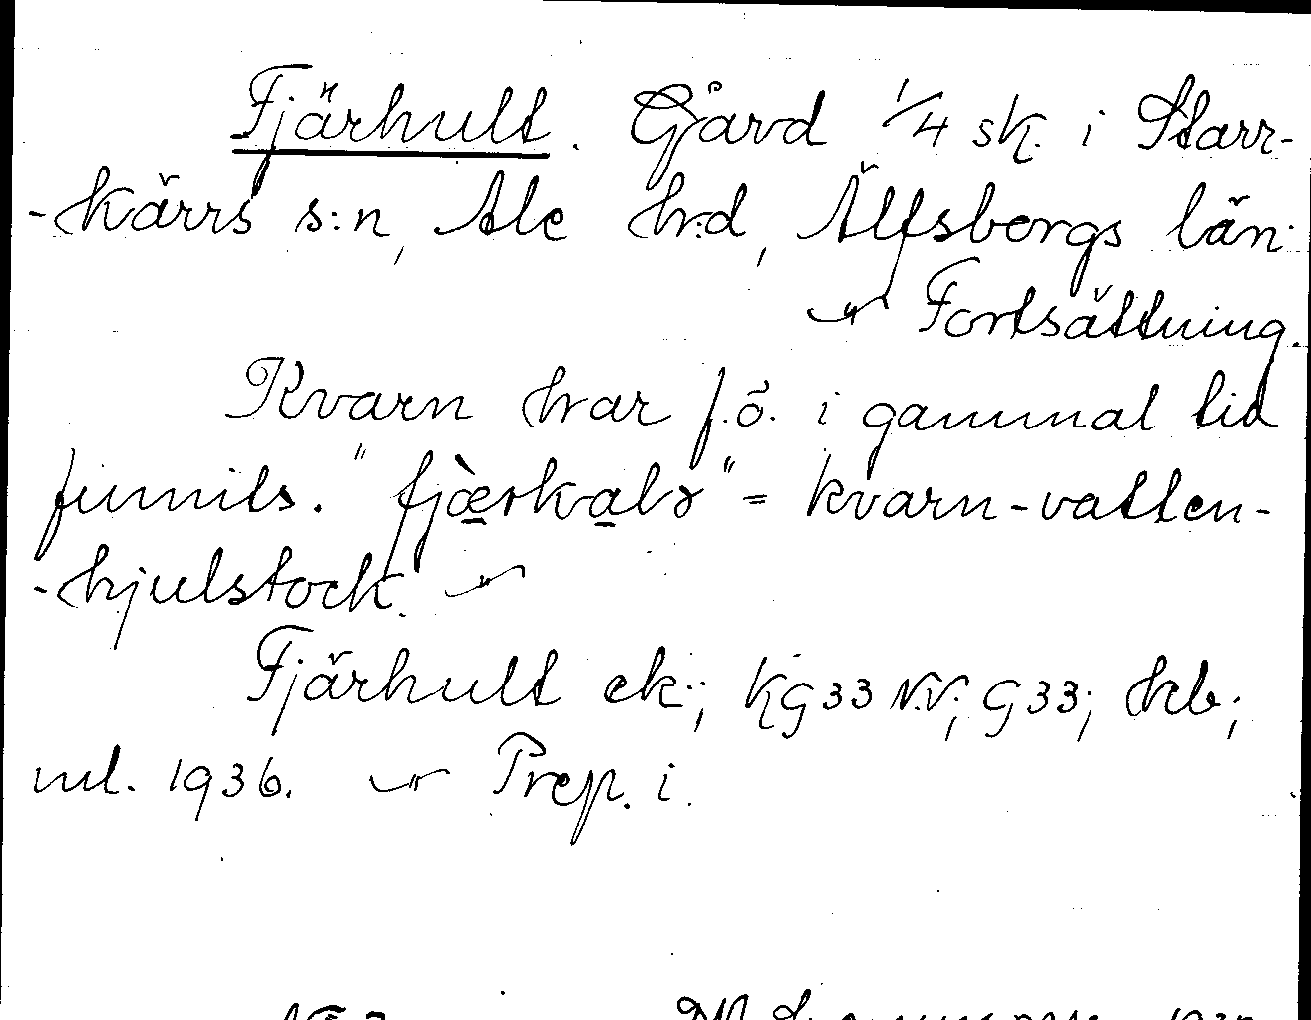 Fjärhult. Gård 1/4 sk. i Starr-
-kärrs s:n, Ale hrd, Älfsborgs län.
Fortsättning.
Kvarn har f.ö. i gammal tid
funnits. "fjæ̀rkabɤ" = kvarn-vatten-
-hjulstock.
Fjärhult ek.; KG33 N.V.; G33; hkb;
ml. 1936. Prep. i.